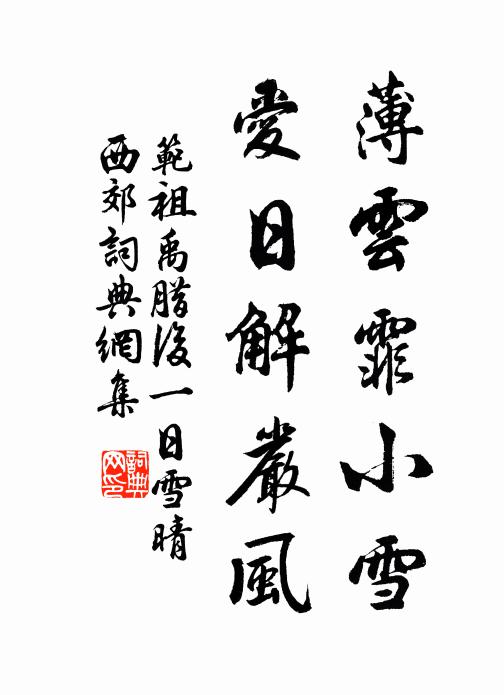 薄雲霏小雪
愛日解嚴風
範祖禹腊後一日雪晴
西郊詞典網集
詞典網印